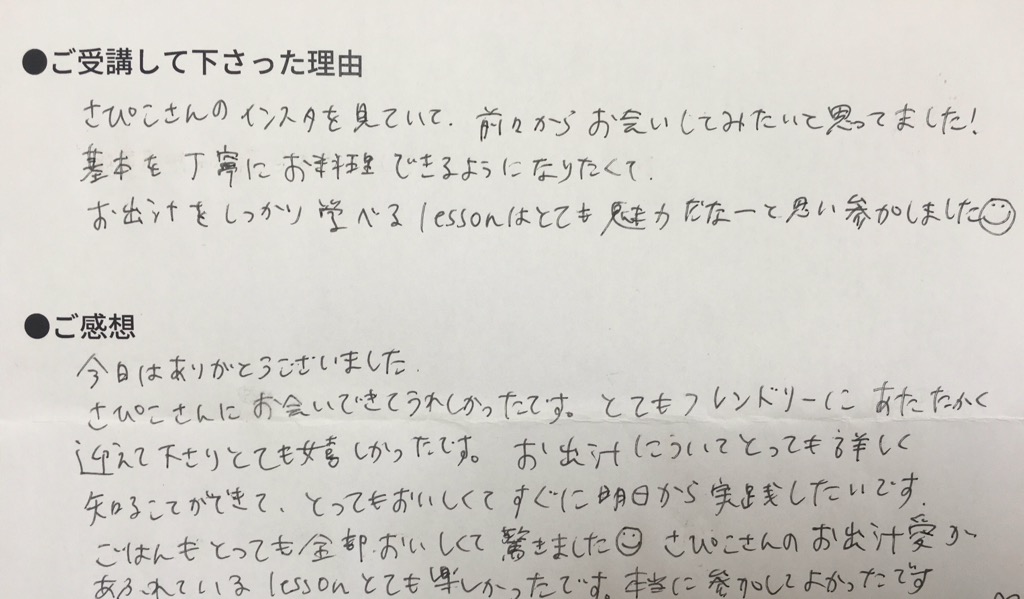 ●ご受講して下さった理由
さぴこさんのインスタを見ていて、前々からお会いしてみたいと思ってました!
基本を丁寧にお料理できるようになりたくて、
お出汁をしっかり学べるlessonはとても魅力だなーと思い参加しました☺
●ご感想
今日はありがとうございました。
さぴこさんにお会いできてうれしかったです。とてもフレンドリーにあたたかく
迎えて下さりとても嬉しかったです。お出汁についてとっても詳しく
知ることができて、とってもおいしくてすぐに明日から実践したいです。
ごはんもとっても全部おいしくて驚きました☺さぴこさんのお出汁愛が
あふれているlessonとても楽しかったです。本当に参加してよかったです